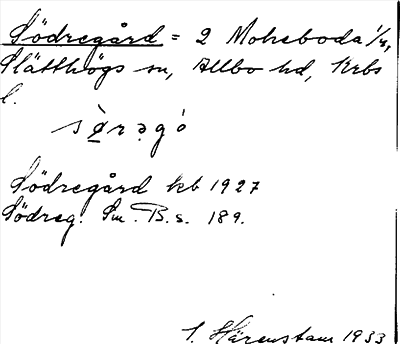 Södregård = 2 Moheboda 1/4,
Slätthögs sn, Allbo hd, Krbs
l.
sø̀rəgó
Södregård kb 1927
Södreg. Sm. B. s. 189.
I. Härenstam 1933